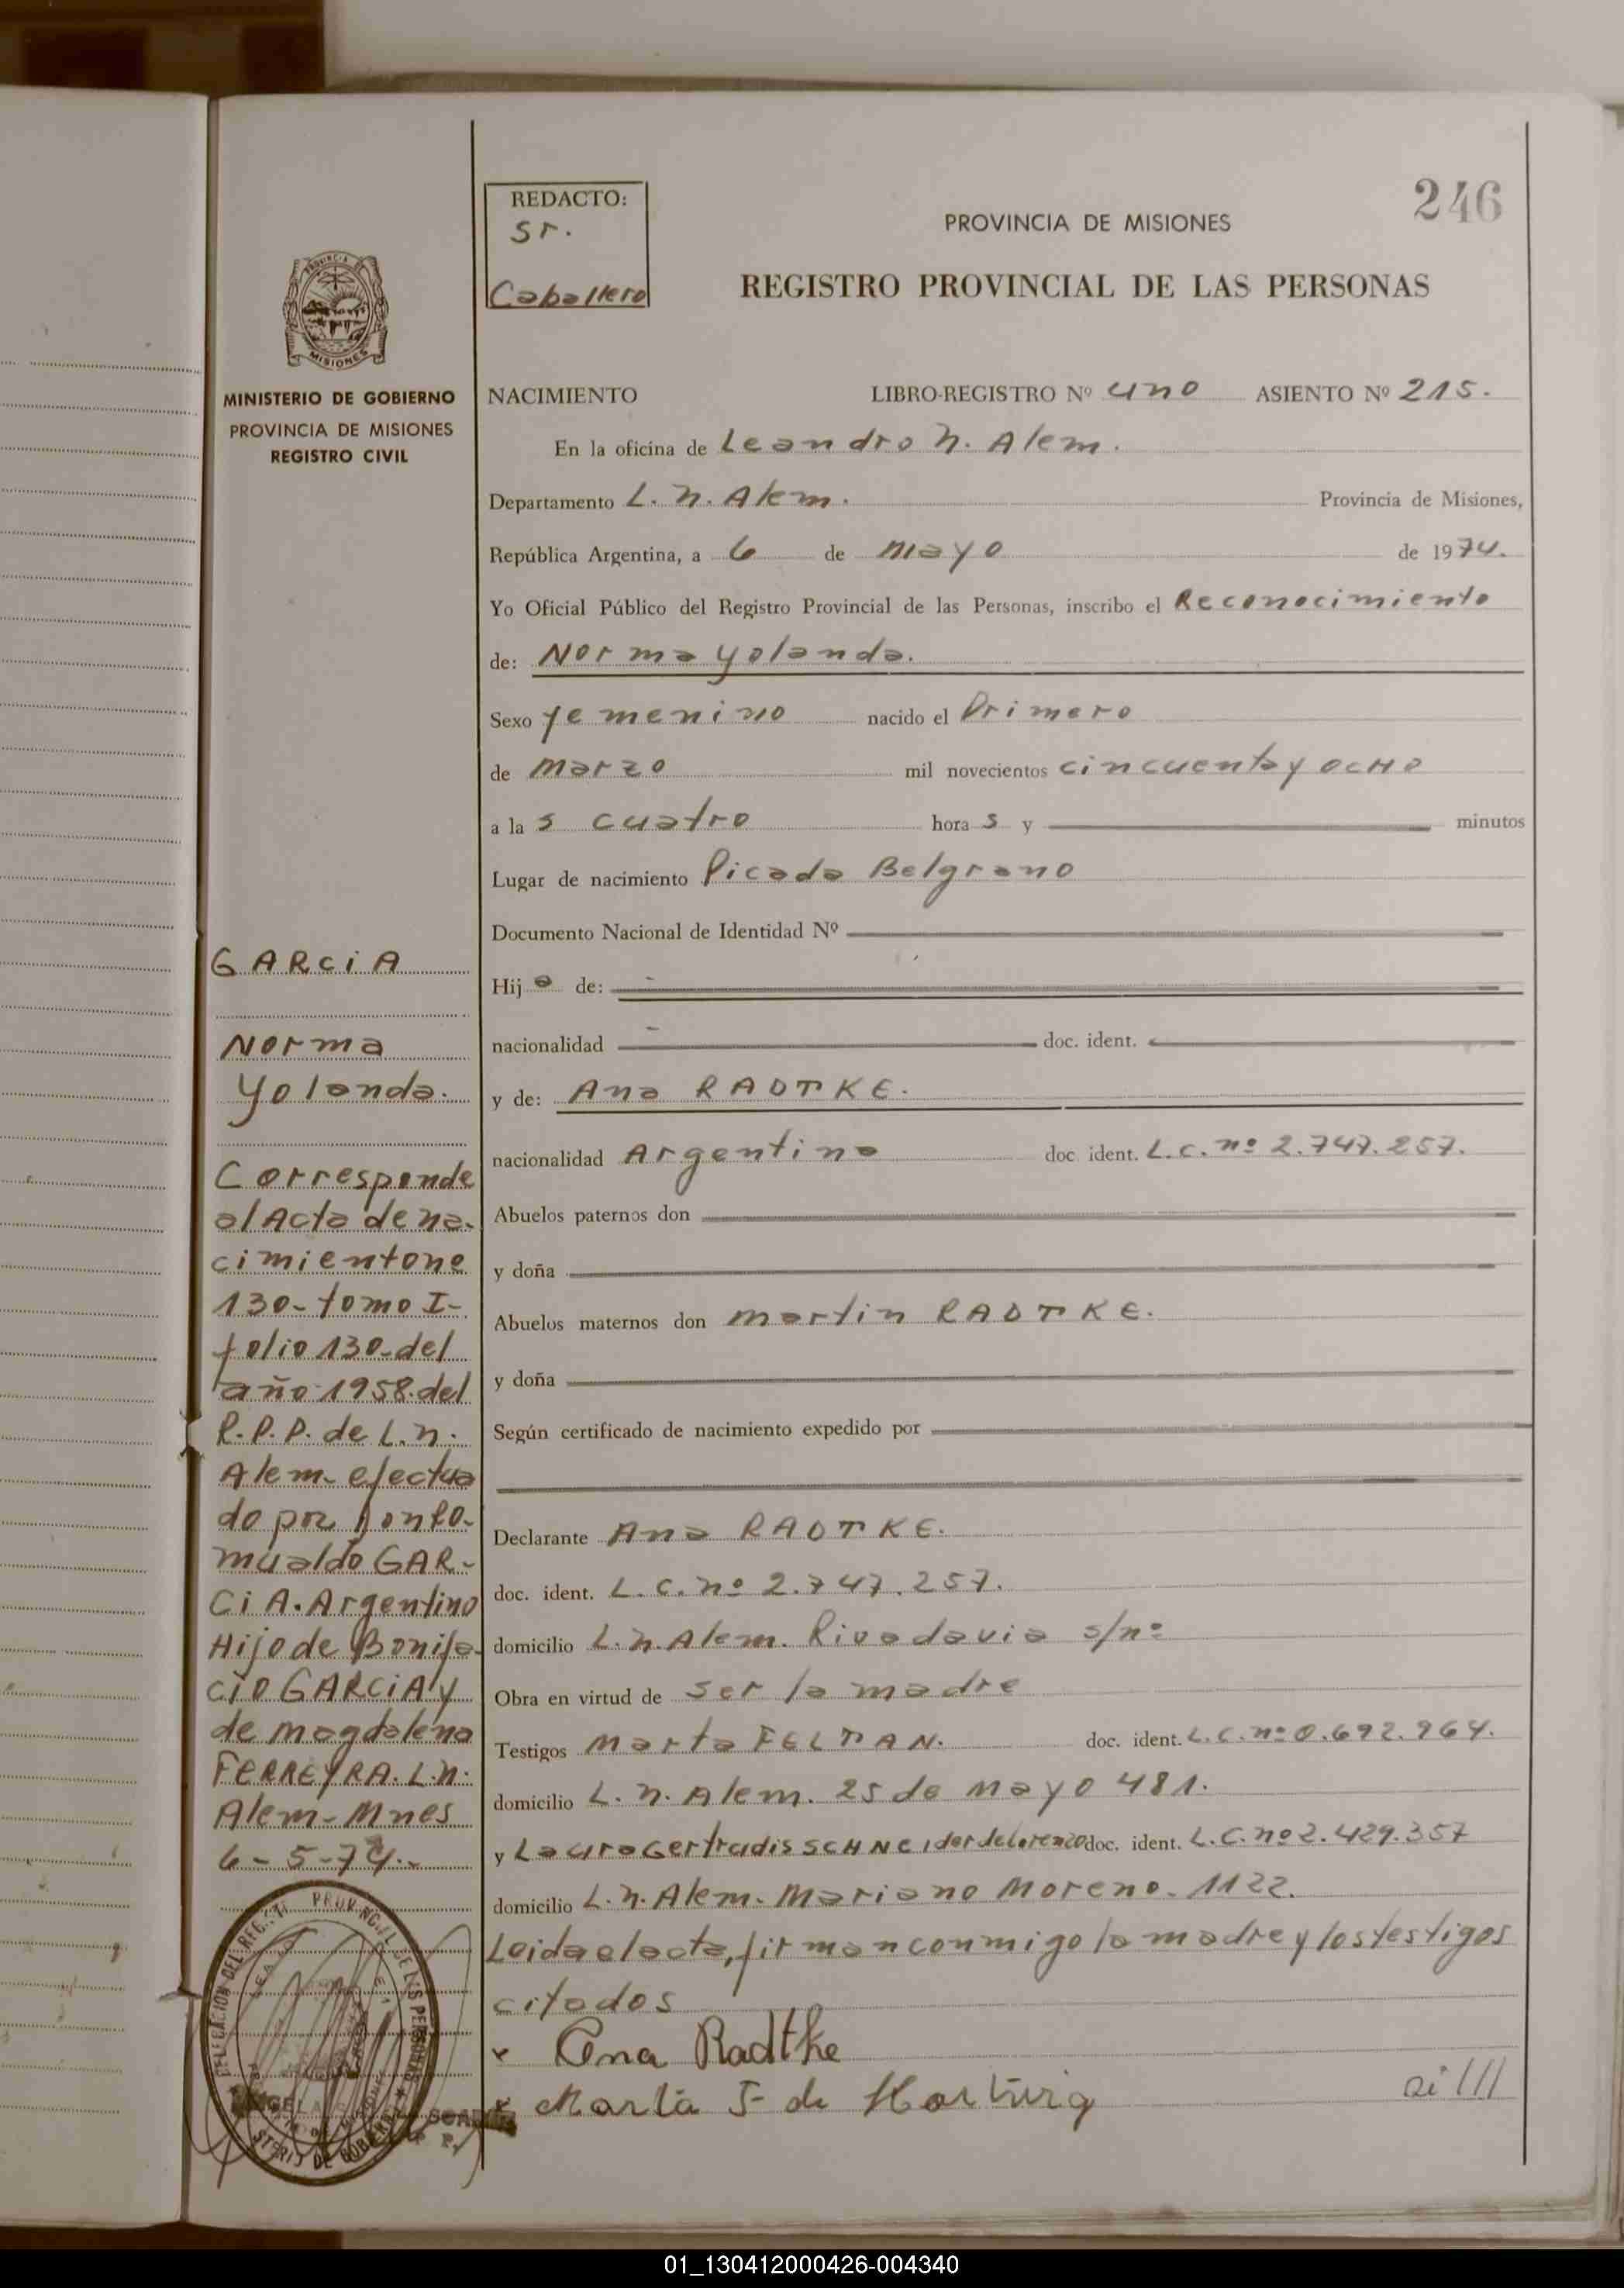 246
REDACTO:
Sr.
Caballero
PROVINCIA DE MISIONES
REGISTRO PROVINCIAL DE LAS PERSONAS
MISIONES
MINISTERIO DE GOBIERNO
PROVINCIA DE MISIONES
REGISTRO CIVIL
NACIMIENTO LIBRO-REGISTRO Nº uno ASIENTO Nº 215.
En la oficina de Leandro N. Alem.
Departamento L. N. Alem. Provincia de Misiones,
República Argentina, a 6 de mayo de 1974.
Yo Oficial Público del Registro Provincial de las Personas, inscribo el Reconocimiento
de: Norma Yolanda.
Sexo femenino nacido el Primero
de marzo mil novecientos cincuenta y ocho
a la s cuatro hora s y minutos
Lugar de nacimiento Picada Belgrano
Documento Nacional de Identidad Nº
Hij a de:
nacionalidad doc. ident.
y de: Ana RADTKE.
nacionalidad Argentina doc. ident. L.C. nº 2.747.257.
Abuelos paternos don
y doña
Abuelos maternos don Martin RADTKE.
y doña
Según certificado de nacimiento expedido por
Declarante Ana RADTKE.
doc. ident. L.C. nº 2.747.257.
domicilio L.N. Alem. Rivadavia s/nº
Obra en virtud de ser la madre
Testigos Marta FELTAN. doc. ident. L.C. nº 0.692.964.
domicilio L. N. Alem. 25 de Mayo 481.
y Laura Gertrudis SCHNEider de Lorenzo doc. ident. L.C. nº 2.429.357
domicilio L.N. Alem. Mariano Moreno. 1122.
Leida el acta, firman conmigo la madre y los testigos
citados
x Ana Radtke
x Marta F de Hartwig
ai ///
GARCIA
Norma
Yolanda.
Corresponde
al Acta de na-
cimiento no
130- tomo I-
folio 130-del
año 1958.del
R.P.P. de L.N.
Alem- efectua
do por Don Ro-
mualdo GAR-
CIA. Argentino
Hijo de Bonifa-
cio GARCIA y
de Magdalena
FERREYRA. L.N.
Alem-Mnes
6-5-74.-
DELEGACION DEL REG. PROVINCIAL DE LAS PERSONAS
DE GOBIERNO
01_130412000426-004340